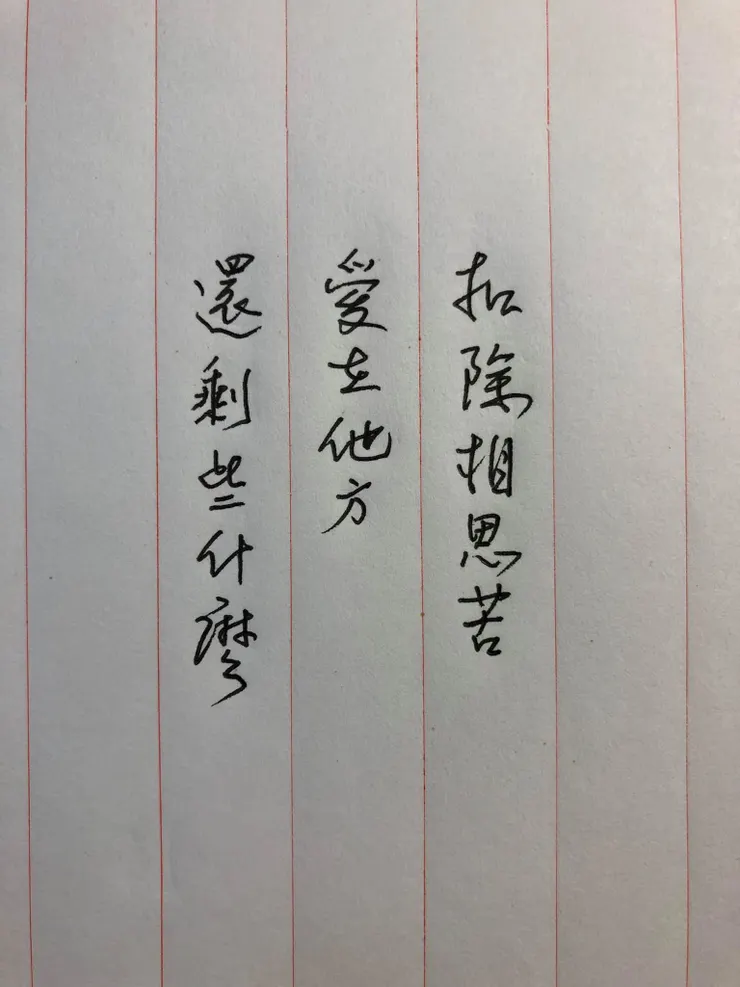 扣除相思苦
愛在他方
還剩些什麼